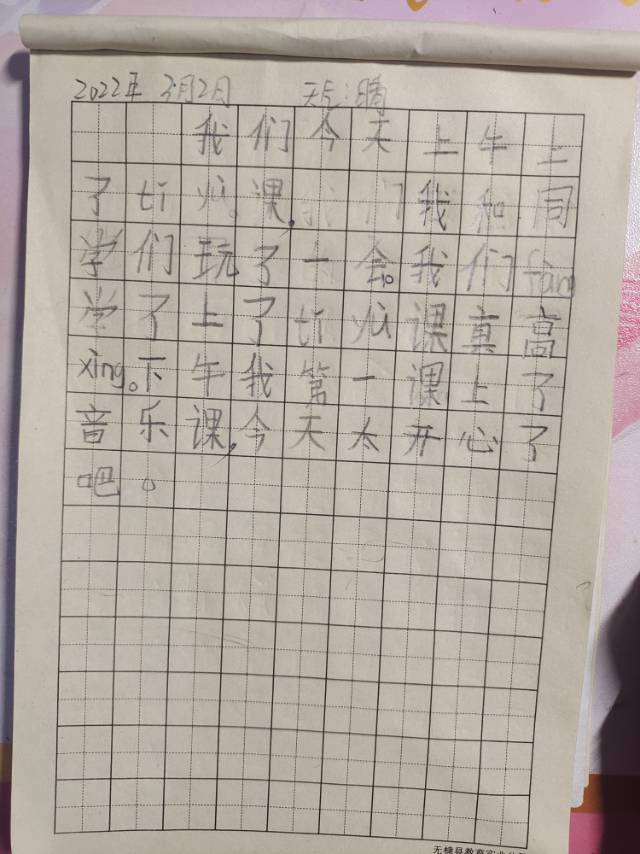 2022年 3月2日 天气:晴
我们今天上午上
了ti yu课,我和同
学们玩了一会。我们fang
学了上了ti yu课真高
xing。下午我第一课上了
音乐课,今天太开心了
吧。